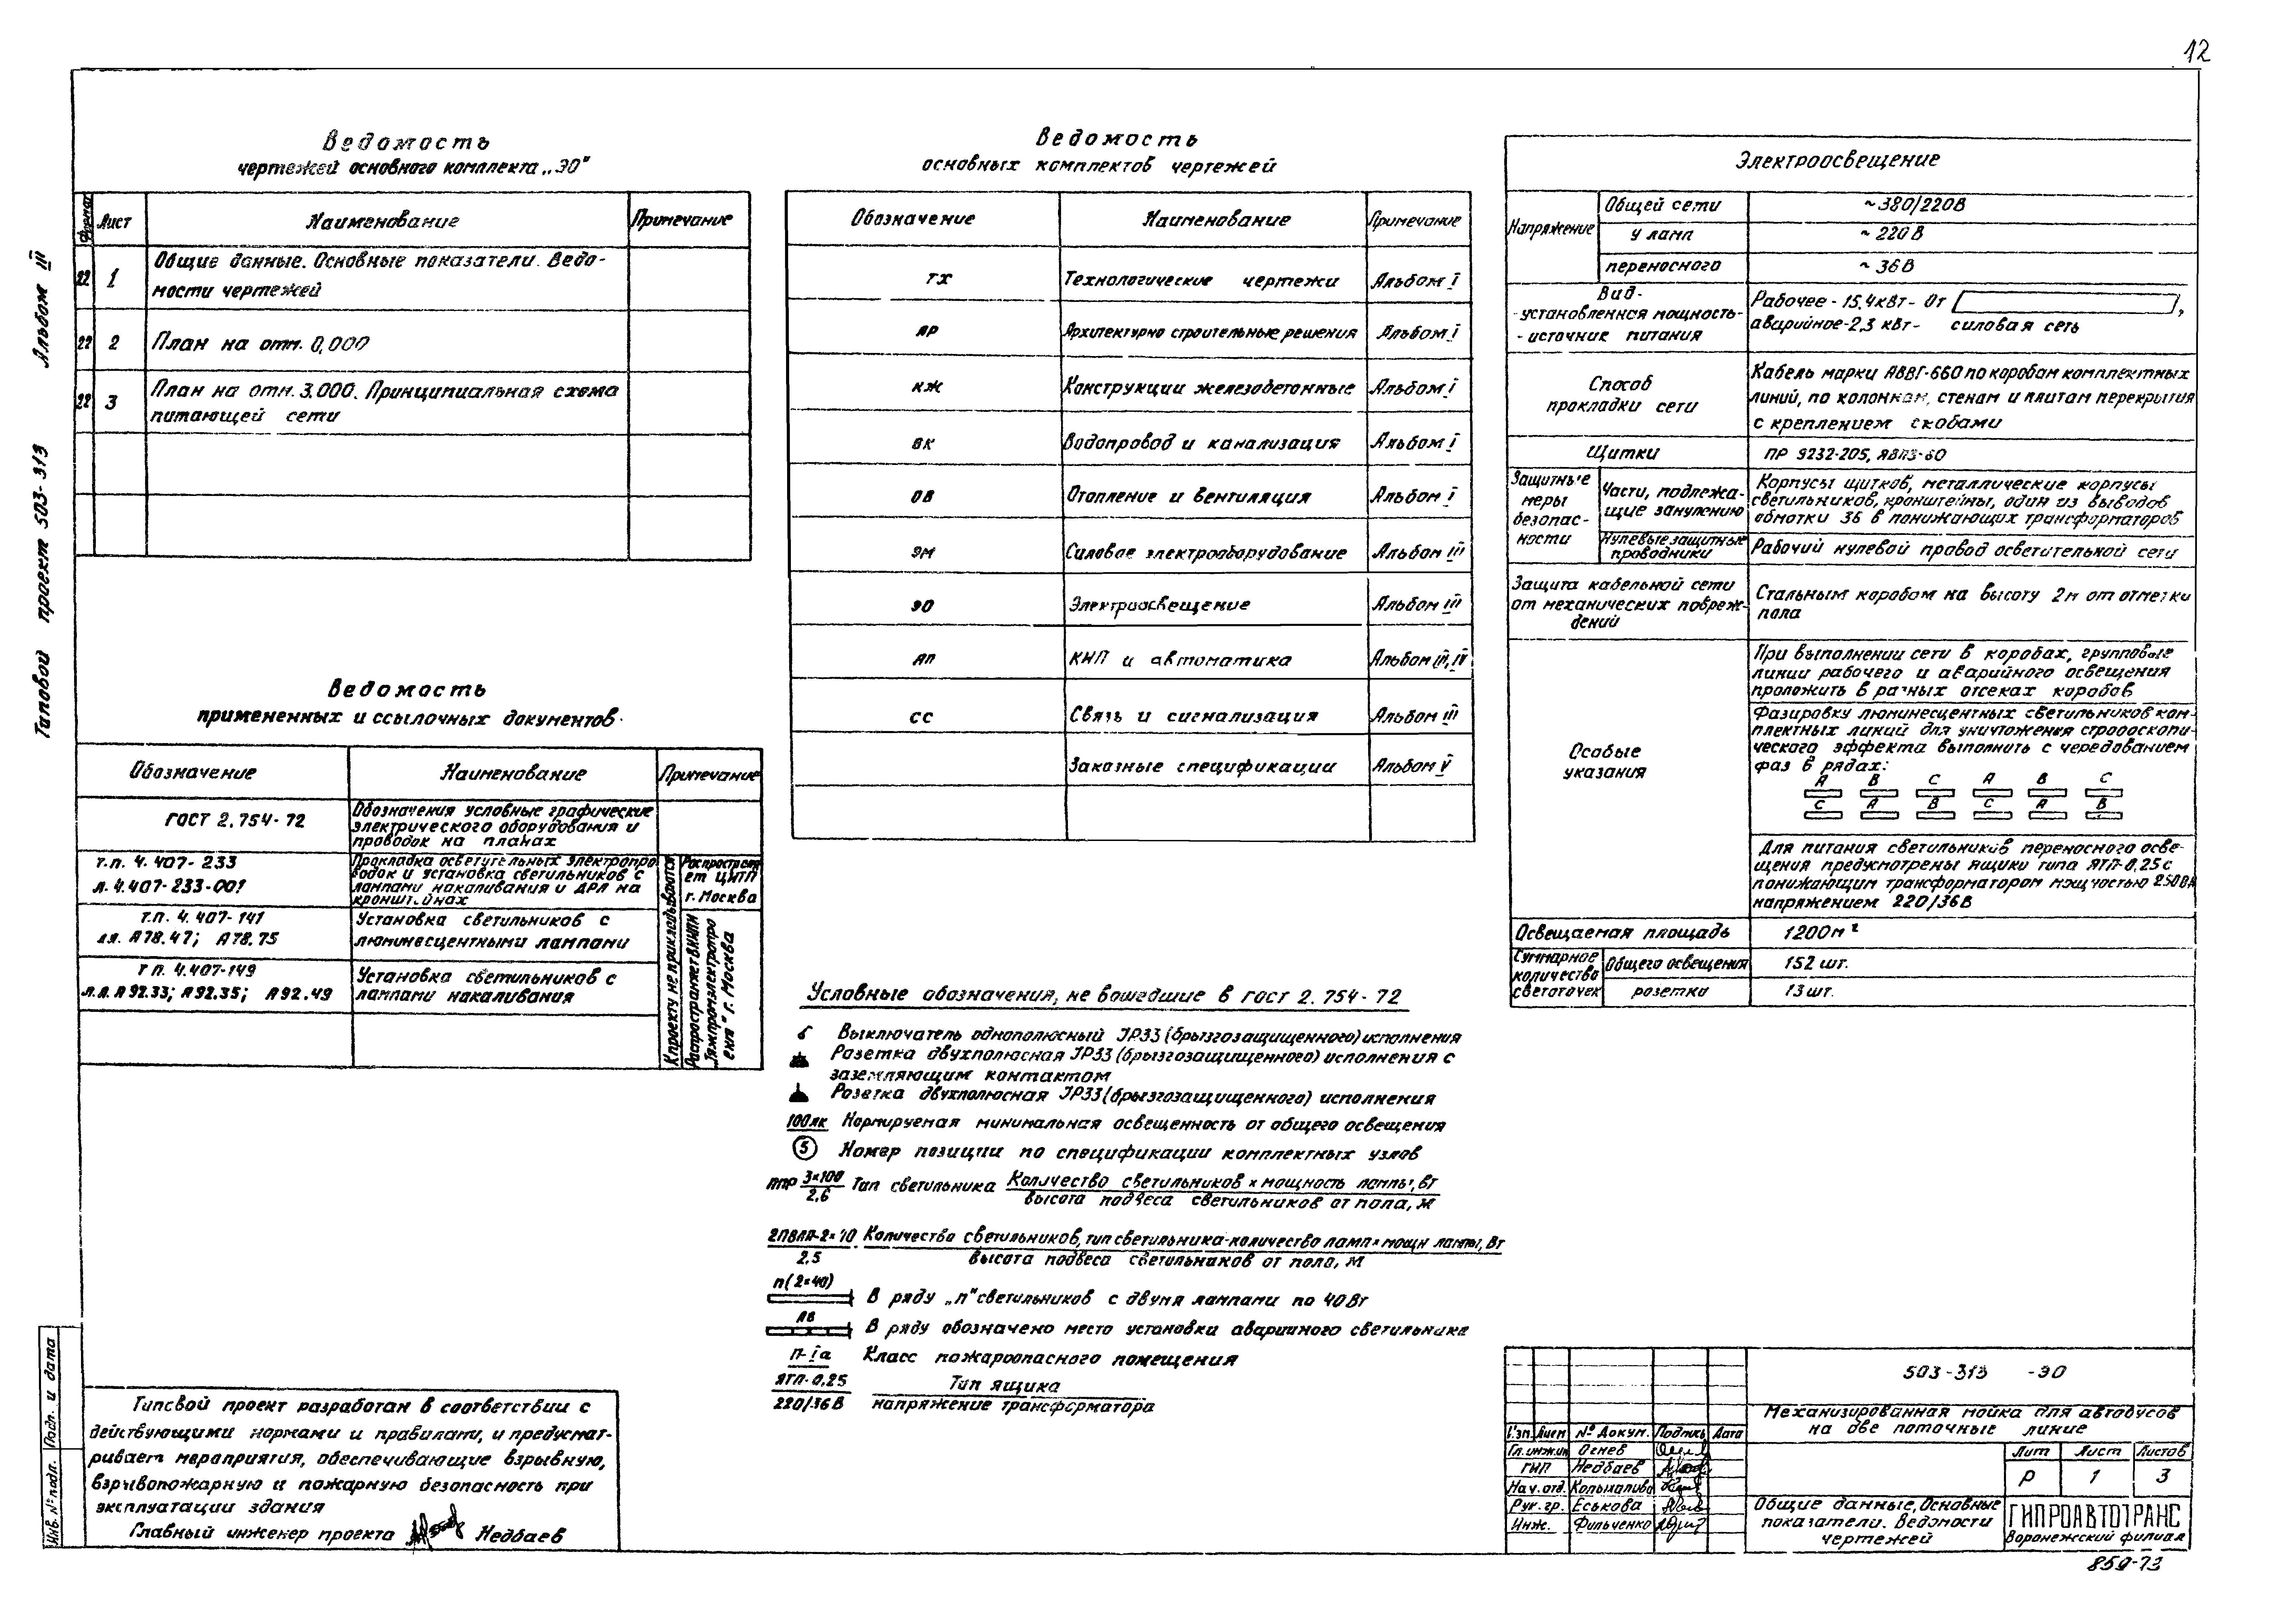 12
Альбом III
Типовой проект 503-313
Ведомость
чертежей основного комплекта „ЭО"
Формат Лист Наименование Примечание
22 1 Общие данные. Основные показатели. Ведо-
мости чертежей
22 2 План на отм. 0,000
22 3 План на отм. 3.000. Принципиальная схема
питающей сети
Ведомость
примененных и ссылочных документов.
Обозначение Наименование Примечание
ГОСТ 2.754-72 Обозначения условные графические
электрического оборудования и
проводок на планах
т.п. 4.407-233 Прокладка осветительных электропро
л. 4.407-233-001 водок и установка светильников с
лампами накаливания и ДРЛ на
кронштейнах
т.п. 4.407-141 Установка светильников с
лл. А78.47; А78.75 люминесцентными лампами
т п. 4.407-149 Установка светильников с
л.л. А92.33; А92.35; А92.49 лампами накаливания
К проекту не прикладываются
Распространя
ет ЦИТП
г. Москва
Распространяет ВНИПИ
Тяжпромэлектропро
ект" г. Москва
Типовой проект разработан в соответствии с
действующими нормами и правилами, и предусмат-
ривает мероприятия, обеспечивающие взрывную,
взрывопожарную и пожарную безопасность при
эксплуатации здания
Главный инженер проекта Недбаев
Инв. № подл. Подп. и дата
Ведомость
основных комплектов чертежей
Обозначение Наименование Примечание
ТХ Технологические чертежи Альбом I
АР Архитектурно строительные решения Альбом I
КЖ Конструкции железобетонные Альбом I
ВК Водопровод и канализация Альбом I
ОВ Отопление и вентиляция Альбом I
ЭМ Силовое электрооборудование Альбом III
ЭО Электроосвещение Альбом III
АП КИП и автоматика Альбом III, IV
СС Связь и сигнализация Альбом III
Заказные спецификации Альбом V
Условные обозначения, не вошедшие в гост 2.754-72
Выключатель однополюсный JP33 (брызгозащищенного) исполнения
Розетка двухполюсная JP33 (брызгозащищенного) исполнения с
заземляющим контактом
Розетка двухполюсная JP33 (брызгозащищенного) исполнения
100лк Нормируемая минимальная освещенность от общего освещения
5 Номер позиции по спецификации комплектных узлов
ППР 3×100 Тип светильника Количество светильников × мощность лампы, Вт
2,6 высота подвеса светильников от пола, м
2ПВЛП-2×40 Количество светильников, тип светильника-количество ламп × мощн лампы, Вт
2,5 высота подвеса светильников от пола, м
n(2×40)
В ряду „n" светильников с двумя лампами по 40Вт
АВ
В ряду обозначено место установки аварийного светильника
П-Iа Класс пожароопасного помещения
ЯТП-0,25 Тип ящика
220/36В напряжение трансформатора
Электроосвещение
Напряжение Общей сети ~380/220В
у ламп ~220В
переносного ~36В
Вид-
-установленная мощность-
-источник питания
Рабочее-15,4кВт-От ,
аварийное-2,3 кВт- силовая сеть
Способ
прокладки сети
Кабель марки АВВГ-660 по коробам комплектных
линий, по колоннам, стенам и плитам перекрытия
с креплением скобами
Щитки ПР 9232-205, ЯВПЗ-60
Защитные
меры
безопас-
ности
Части, подлежа-
щие занулению
Корпусы щитков, металлические корпусы
светильников, кронштейны, один из выводов
обмотки 36 в понижающих трансформаторов
Нулевые защитные
проводники
Рабочий нулевой провод осветительной сети
Защита кабельной сети
от механических повреж-
дений
Стальным коробом на высоту 2м от отметки
пола
Особые
указания
При выполнении сети в коробах, групповые
линии рабочего и аварийного освещения
проложить в разных отсеках коробов
Фазировку люминесцентных светильников ком-
плектных линий для уничтожения стробоскопи-
ческого эффекта выполнить с чередованием
фаз в рядах:
А В С А В С
С А В С А В
Для питания светильников переносного осве-
щения предусмотрены ящики типа ЯТП-0,25 с
понижающим трансформатором мощностью 250ВА
напряжением 220/36В
Освещаемая площадь 1200м²
Суммарное
количество
светоточек
Общего освещения 152 шт.
розетки 13 шт.
503-313 -ЭО
Механизированная мойка для автобусов
на две поточные линие
Изм. Лист № докум. Подпись Дата
Гл. инж. ин Огнев
ГИП Недбаев
Нач. отд.
Рук. гр. Еськова
Инж. Фильченко
Лит Лист Листов
Р 1 3
Общие данные, Основные
показатели. Ведомости
чертежей
ГИПРОАВТОТРАНС
Воронежский филиал
859-73